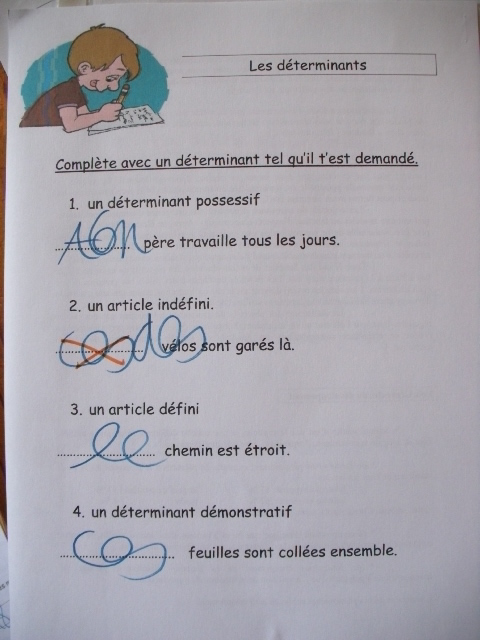 Les déterminants
Complète avec un déterminant tel qu'il t'est demandé.
1. un déterminant possessif
ton père travaille tous les jours.
2. un article indéfini.
ces des vélos sont garés là.
3. un article défini
le chemin est étroit.
4. un déterminant démonstratif
ces feuilles sont collées ensemble.